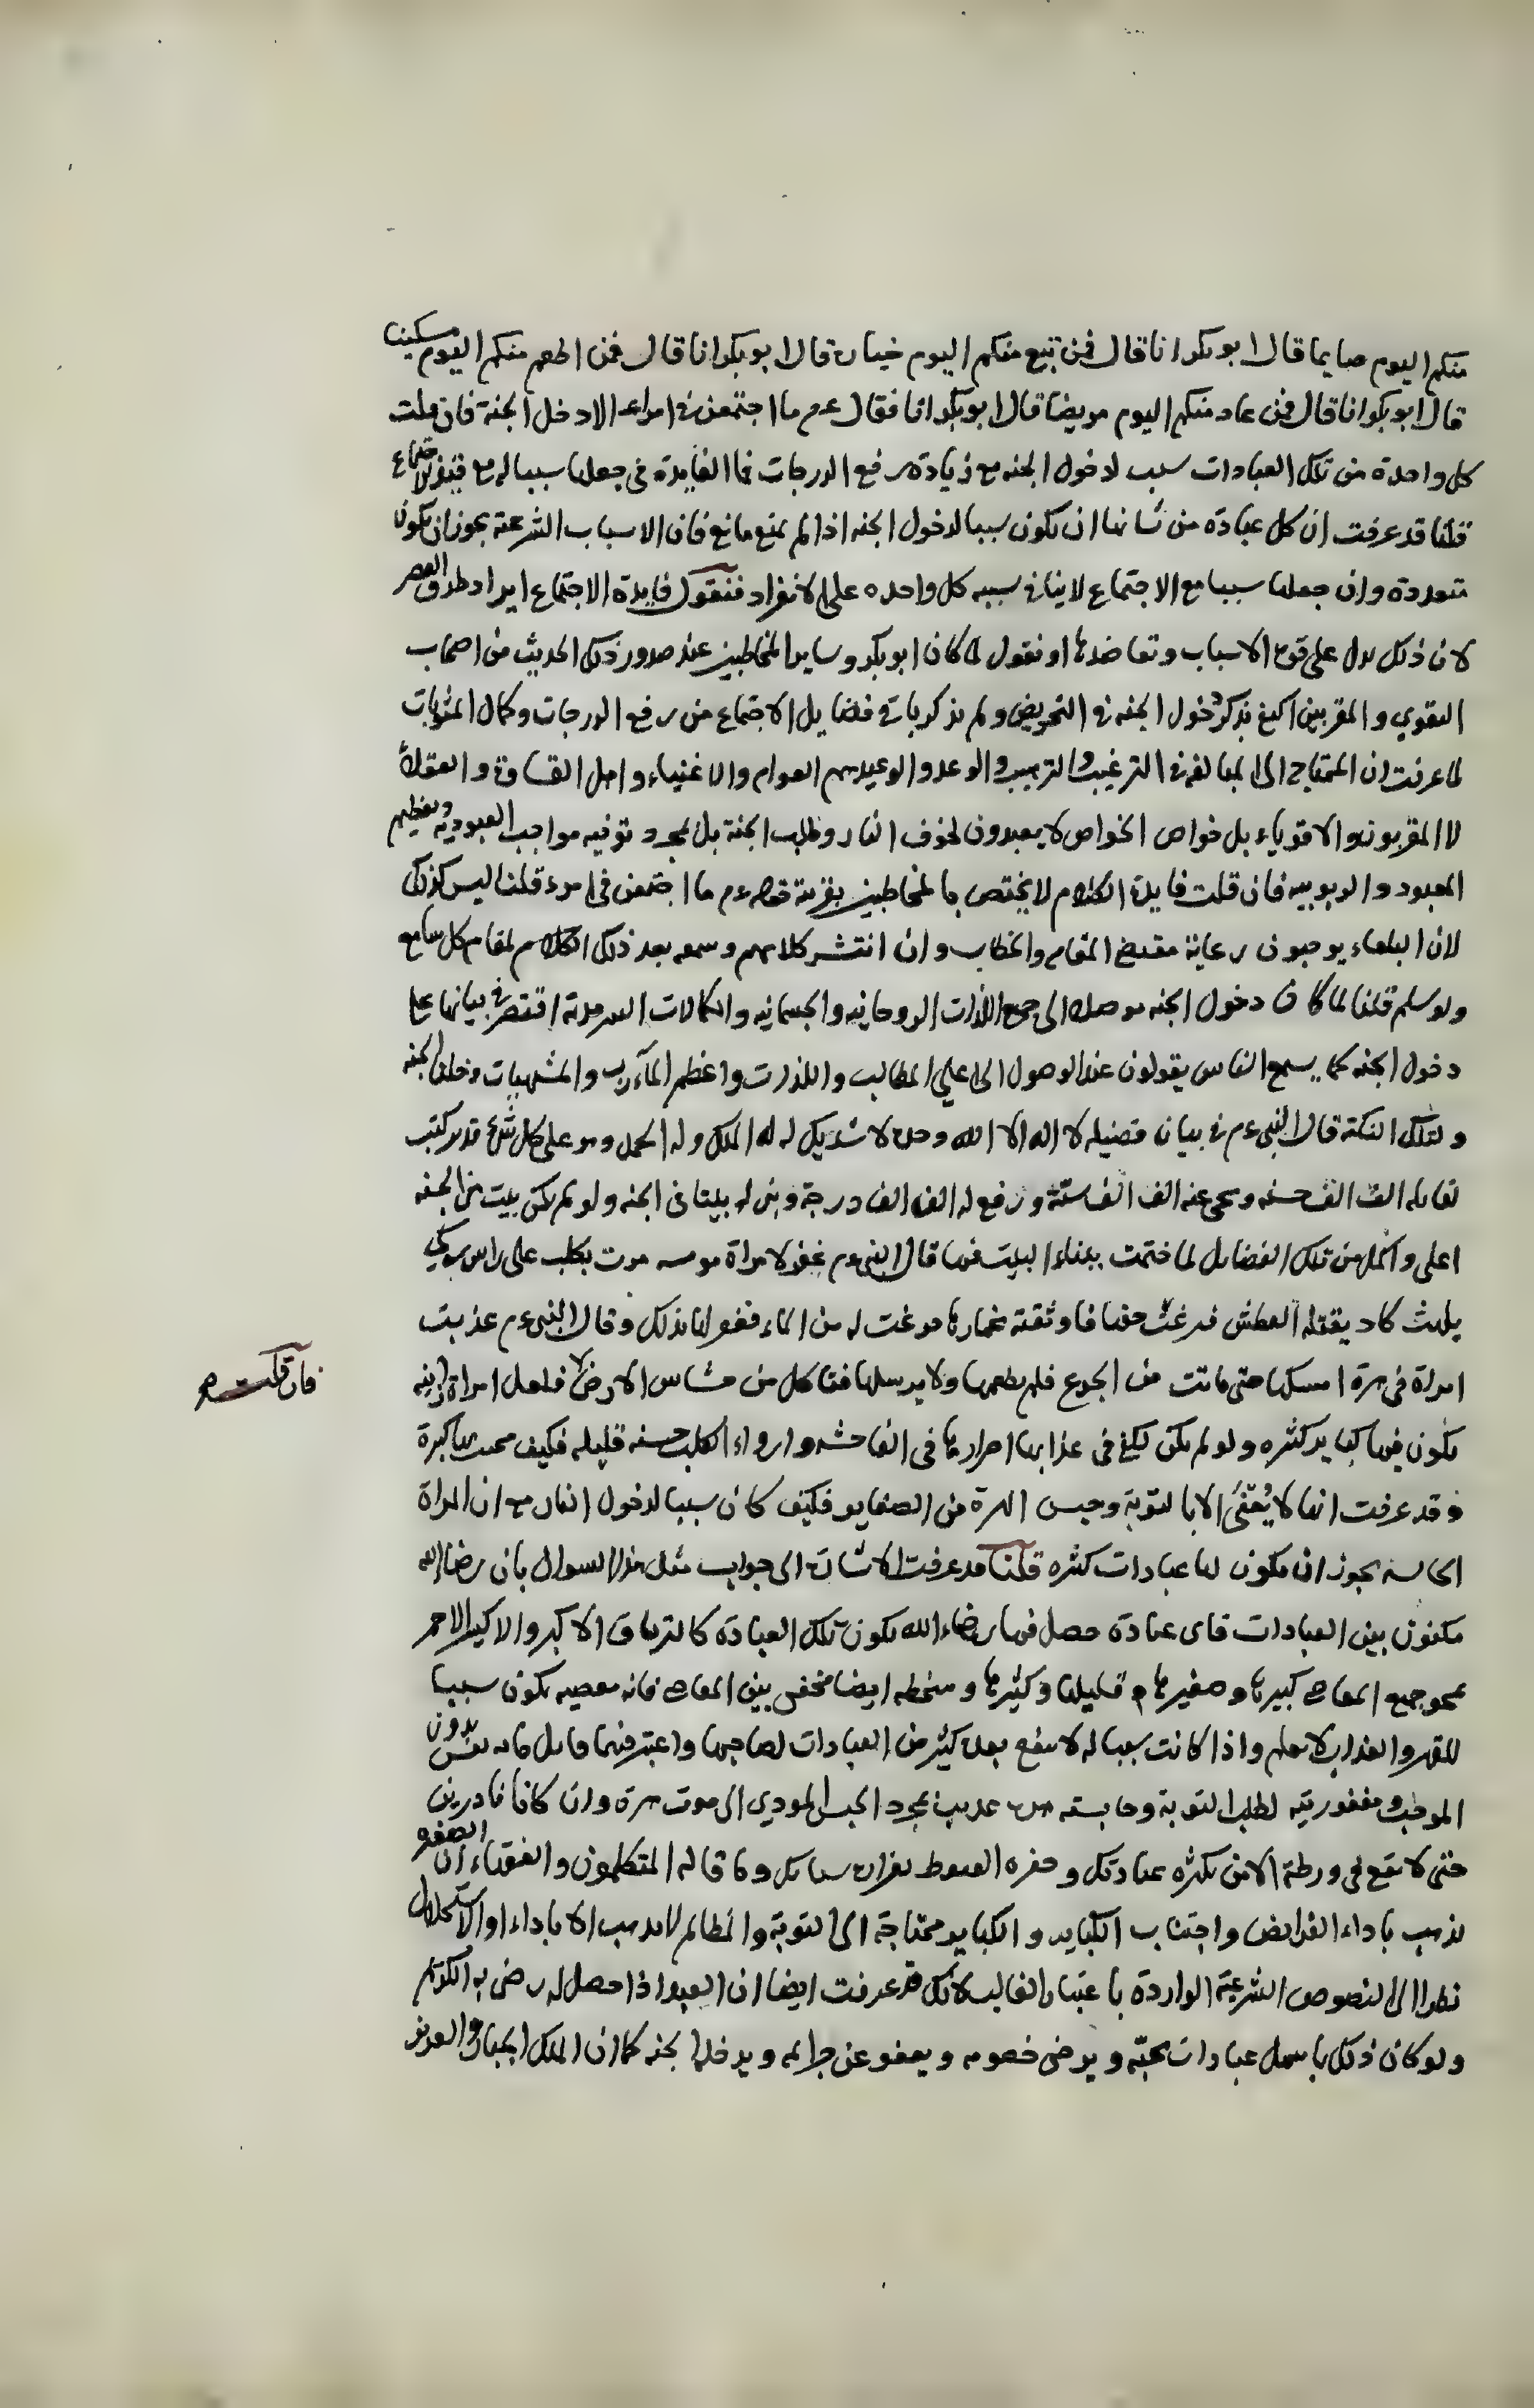 منكم اليوم صايما قال ابو بكر انا قال فمن تبع منكم اليوم جنازة قال ابو بكر انا قال فمن اطعم منكم اليوم مسكينا
قال ابو بكر انا قال فمن عاد منكم اليوم مريضا قال ابو بكر انا فقال عم ما اجتمعن في امراء الا دخل الجنة فان قلت
كل واحدة من تلك العبادات سبب لدخول الجنه مع زيادة رفع الدرجات فما الفايدة في جعلها سببا له مع قيد الاجتماع
قلنا قد عرفت ان كل عبادة من شانها ان تكون سببا لدخول الجنه اذا لم يمنع مانع فان الاسباب الشرعية يجوز ان تكون
متعددة وان جعلها سببا مع الاجتماع لا ينافي سببيه كل واحده على الانفراد فنقول فايدة الاجتماع ايراد طريق
لان ذلك يدل على قوة الاسباب وتعاضدها او نقول لما كان ابو بكر وساير المخاطبين عند صدور ذلك الحديث من اصحاب
التقوي والمقربين اكتفي بذكر دخول الجنه في التحريض ولم يذكر باقي فضايل الاجتماع من رفع الدرجات وكمال المثوبات
لما عرفت ان المحتاج الى المبالغه في الترغيب والترهيب والوعد والوعيد هم العوام والاغنياء واهل القساوة و
لا المقربون والاقوياء بل خواص الخواص لا يعبدون لخوف النار وطلب الجنة بل لمجرد توفيه مواجب العبوديه وتعظيم
المعبود والربوبيه فان قلت فايدة الكلام لا يختص بالمخاطبين بقرينة قوله عم ما اجتمعن في امرء قلنا ليس كذلك
لان البلغاء يوجبون رعاية مقتضى المقام والخطاب وان انتشر كلامهم وسمع بعد ذلك الكلام لمقام كل سامع
ولو سلم قلنا لما كان دخول الجنه موصلا الى جميع اللذات الروحانيه والجسمانيه والكمالات السرمدية اقتصر في بيانها على
دخول الجنه كما يسمع الناس يقولون عند الوصول الى اعلي المطالب واللذات واعظم المآرب والمشتهيات دخلنا الجنه
ولتلك النكتة قال النبي عم في بيان فضيله لا اله الا الله وحده لا شريك له له الملك وله الحمد وهو على كل شئ قدير كتب
لقايله الف الف حسنه ومحي عنه الف الف سيئة ورفع له الف الف درجة وبني له بيتا في الجنه ولو لم يكن بيت من الجنه
اعلى واكمل من تلك الفضايل لما ختمت ببناء البيت فيها قال النبي عم غفر لامراة مومسه مرت بكلب على راس ركي
يلهث كاد يقتله العطش فنزعت خفها فاوثقته بخمارها فنزعت له من الماء فغفر لها بذلك وقال النبي عم عذبت
امراة في هرة امسكتها حتى ماتت من الجوع فلم تطعمها ولا ترسلها فتاكل من خشاش الارض فلعل امراة زانيه
فان قلت صح
تكون فيها كباير كثيره ولو لم يكن يكفي في عذابها اصرارها في الفاحشه وارواء الكلب حسنه قليله فكيف محت بها كبيرة
وقد عرفت انها لا تعفي الا بالتوبة وحبس الهرة من الصغاير فكيف كان سببا لدخول النار مع ان المراة
الحابسه يجوز ان يكون لها عبادات كثيره قلنا قد عرفت الاشارة الى جواب مثل هذا السوال بان رضا الله
مكنون بين العبادات فاى عبادة حصل فيها رضاء الله تكون تلك العبادة كالترياق الاكبر والاكسير الاحمر
تمحو جميع المعاصي كبيرها وصغيرها قليلها وكثيرها وسخطه ايضا مخفي بين المعاصي فاية معصيه تكون سببا
للقهر والعذاب لا تعلم واذا كانت سببا له لا ينفع بعده كثير من العبادات لصاحبها واعتبر فيها
الموجب ومغفورتيه لطلب التوبة وحابسته عذبت بمجرد الحبس المودي الى موت هرة وان كانا قادرين
حتى لا تقع في ورطة الامن بكثره عبادتك وحفره القنوط وما قاله المتكلمون والفقهاء ان الصغيره
تذهب باداء الفرايض واجتناب الكباير والكباير محتاجة الى التوبة والمظالم لا تذهب الا باداء او الاستحلال
نظرا الى النصوص الشرعية الواردة باعتبار الغالب لانك قد عرفت ايضا ان العبد اذا حصل له رضي به الكريم
ولو كان ذلك باسهل عبادات يحبه ويرضى خصومه ويعفو عن جرايمه ويدخله الجنه كما ان الملك الجبار والعزيز